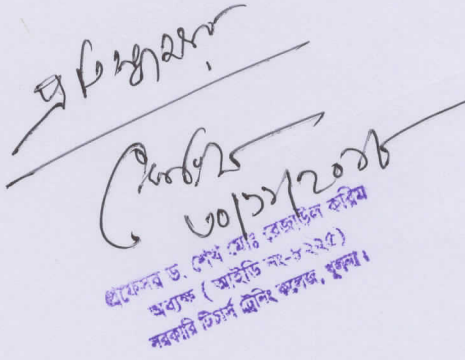 প্রতিস্বাক্ষর
৩০/১১/২০১৮
প্রফেসর ড. শেখ মোঃ রেজাউল করিম
অধ্যক্ষ ( আইডি নং-৮২২৫)
সরকারি টিচার্স ট্রেনিং কলেজ, খুলনা।